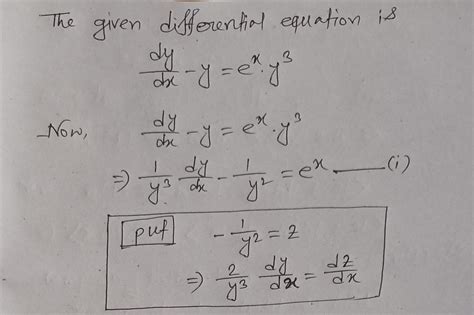 The given differential equation is
dy/dx - y = e^x · y^3
Now, dy/dx - y = e^x · y^3
⇒ 1/y^3 dy/dx - 1/y^2 = e^x —— (i)
put - 1/y^2 = z
⇒ 2/y^3 dy/dx = dz/dx